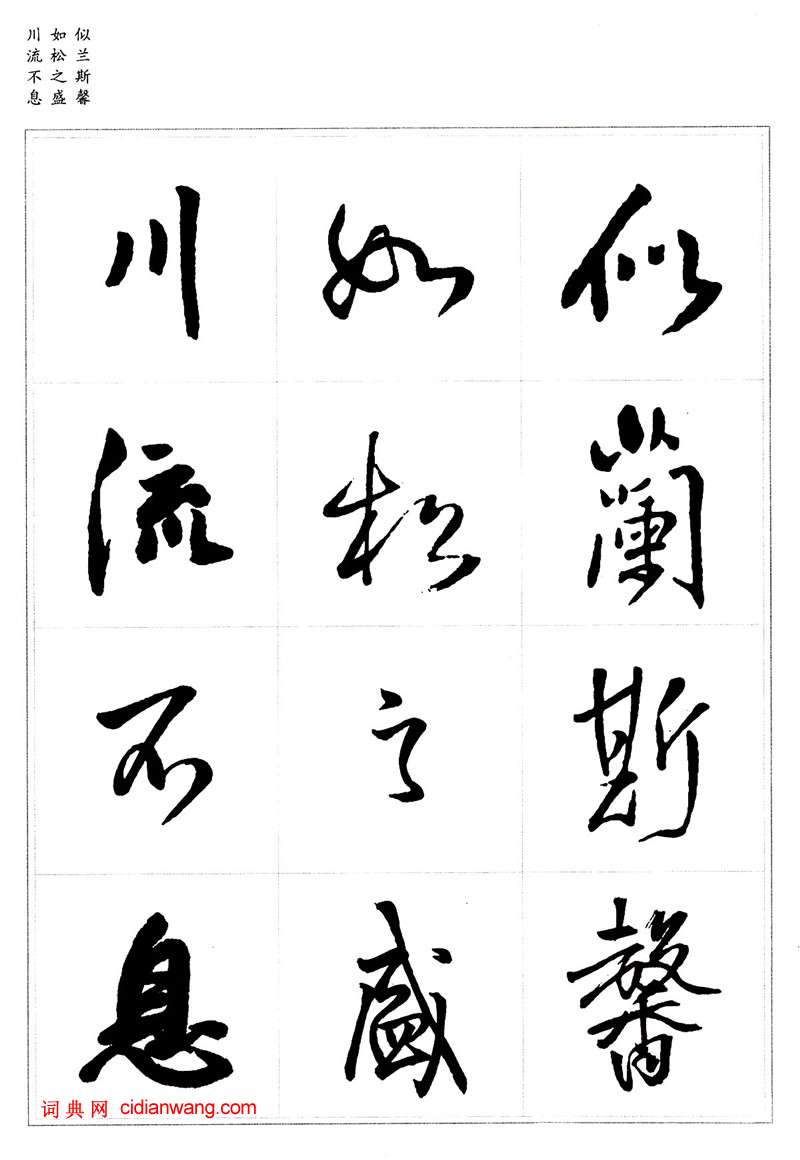 似兰斯馨
如松之盛
川流不息
似蘭斯馨
如松之盛
川流不息
词典网 cidianwang.com